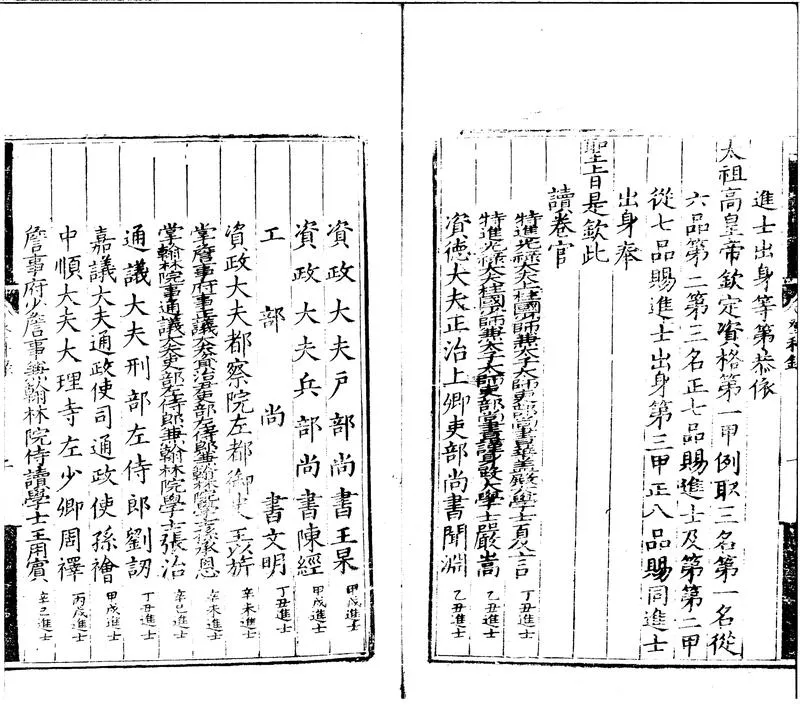 進士出身等第恭依
太祖高皇帝欽定資格第一甲例取三名第一名從
六品第二第三名正七品賜進士及第第二甲
從七品賜進士出身第三甲正八品賜同進士
出身奉
聖旨是欽此
讀卷官
特進光祿大夫上柱國少師兼太子太師吏部尚書華蓋殿大學士夏言 丁丑進士
特進光祿大夫柱國少師兼太子太師吏部尚書謹身殿大學士嚴嵩 乙丑進士
資德大夫正治上卿吏部尚書聞淵 乙丑進士
資政大夫戶部尚書王杲 甲戌進士
資政大夫兵部尚書陳經 甲戌進士
工部尚書文明 丁丑進士
資政大夫都察院左都御史 辛未進士
掌詹事府事正議大夫資治尹吏部左侍郎兼翰林院學士孫承恩 辛未進士
掌翰林院事通議大夫吏部左侍郎兼翰林院學士張治 辛巳進士
通議大夫刑部左侍郎劉訒 丁丑進士
嘉議大夫通政使司通政使孫禬 甲戌進士
中順大夫大理寺左少卿周襗 丙戌進士
詹事府少詹事兼翰林院侍讀學士王用賓 辛巳進士